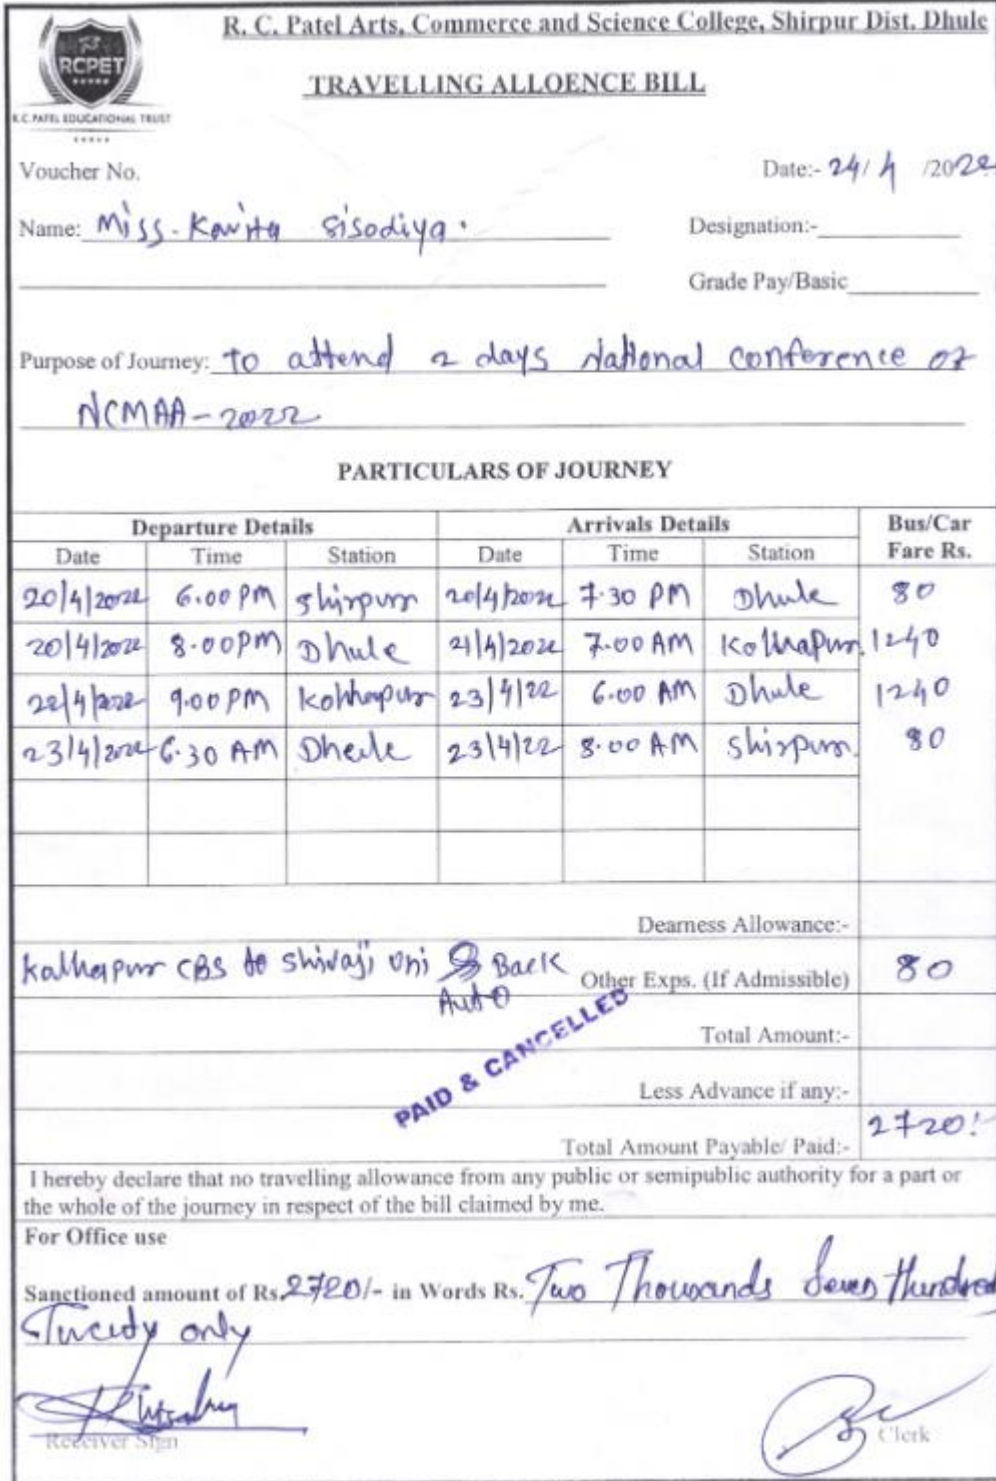 R. C. Patel Arts, Commerce and Science College, Shirpur Dist. Dhule
RCPET
R.C.PATEL EDUCATIONAL TRUST
TRAVELLING ALLOENCE BILL
Voucher No. Date:- 24/ 4 /2022
Name: Miss. Kavita Sisodiya. Designation:-
Grade Pay/Basic
Purpose of Journey: To attend 2 days National conference of
NCMAA-2022
PARTICULARS OF JOURNEY
Departure Details Arrivals Details Bus/Car
Date Time Station Date Time Station Fare Rs.
20/4/2022 6.00 PM Shirpur 20/4/2022 7.30 PM Dhule 80
20/4/2022 8.00PM Dhule 21/4/2022 7.00 AM Kolhapur. 1240
22/4/2022 9.00 PM Kolhapur 23/4/22 6.00 AM Dhule 1240
23/4/2022 6.30 AM Dhule 23/4/22 8.00 AM Shirpur. 80
Dearness Allowance:-
Kolhapur CBS to Shivaji Uni & Back Other Exps. (If Admissible) 80
Auto
Total Amount:-
PAID & CANCELLED
Less Advance if any:-
Total Amount Payable/ Paid:- 2720/-
I hereby declare that no travelling allowance from any public or semipublic authority for a part or
the whole of the journey in respect of the bill claimed by me.
For Office use
Sanctioned amount of Rs. 2720/- in Words Rs. Two Thousands Seven Hundred
Twenty only
Receiver Sign Clerk